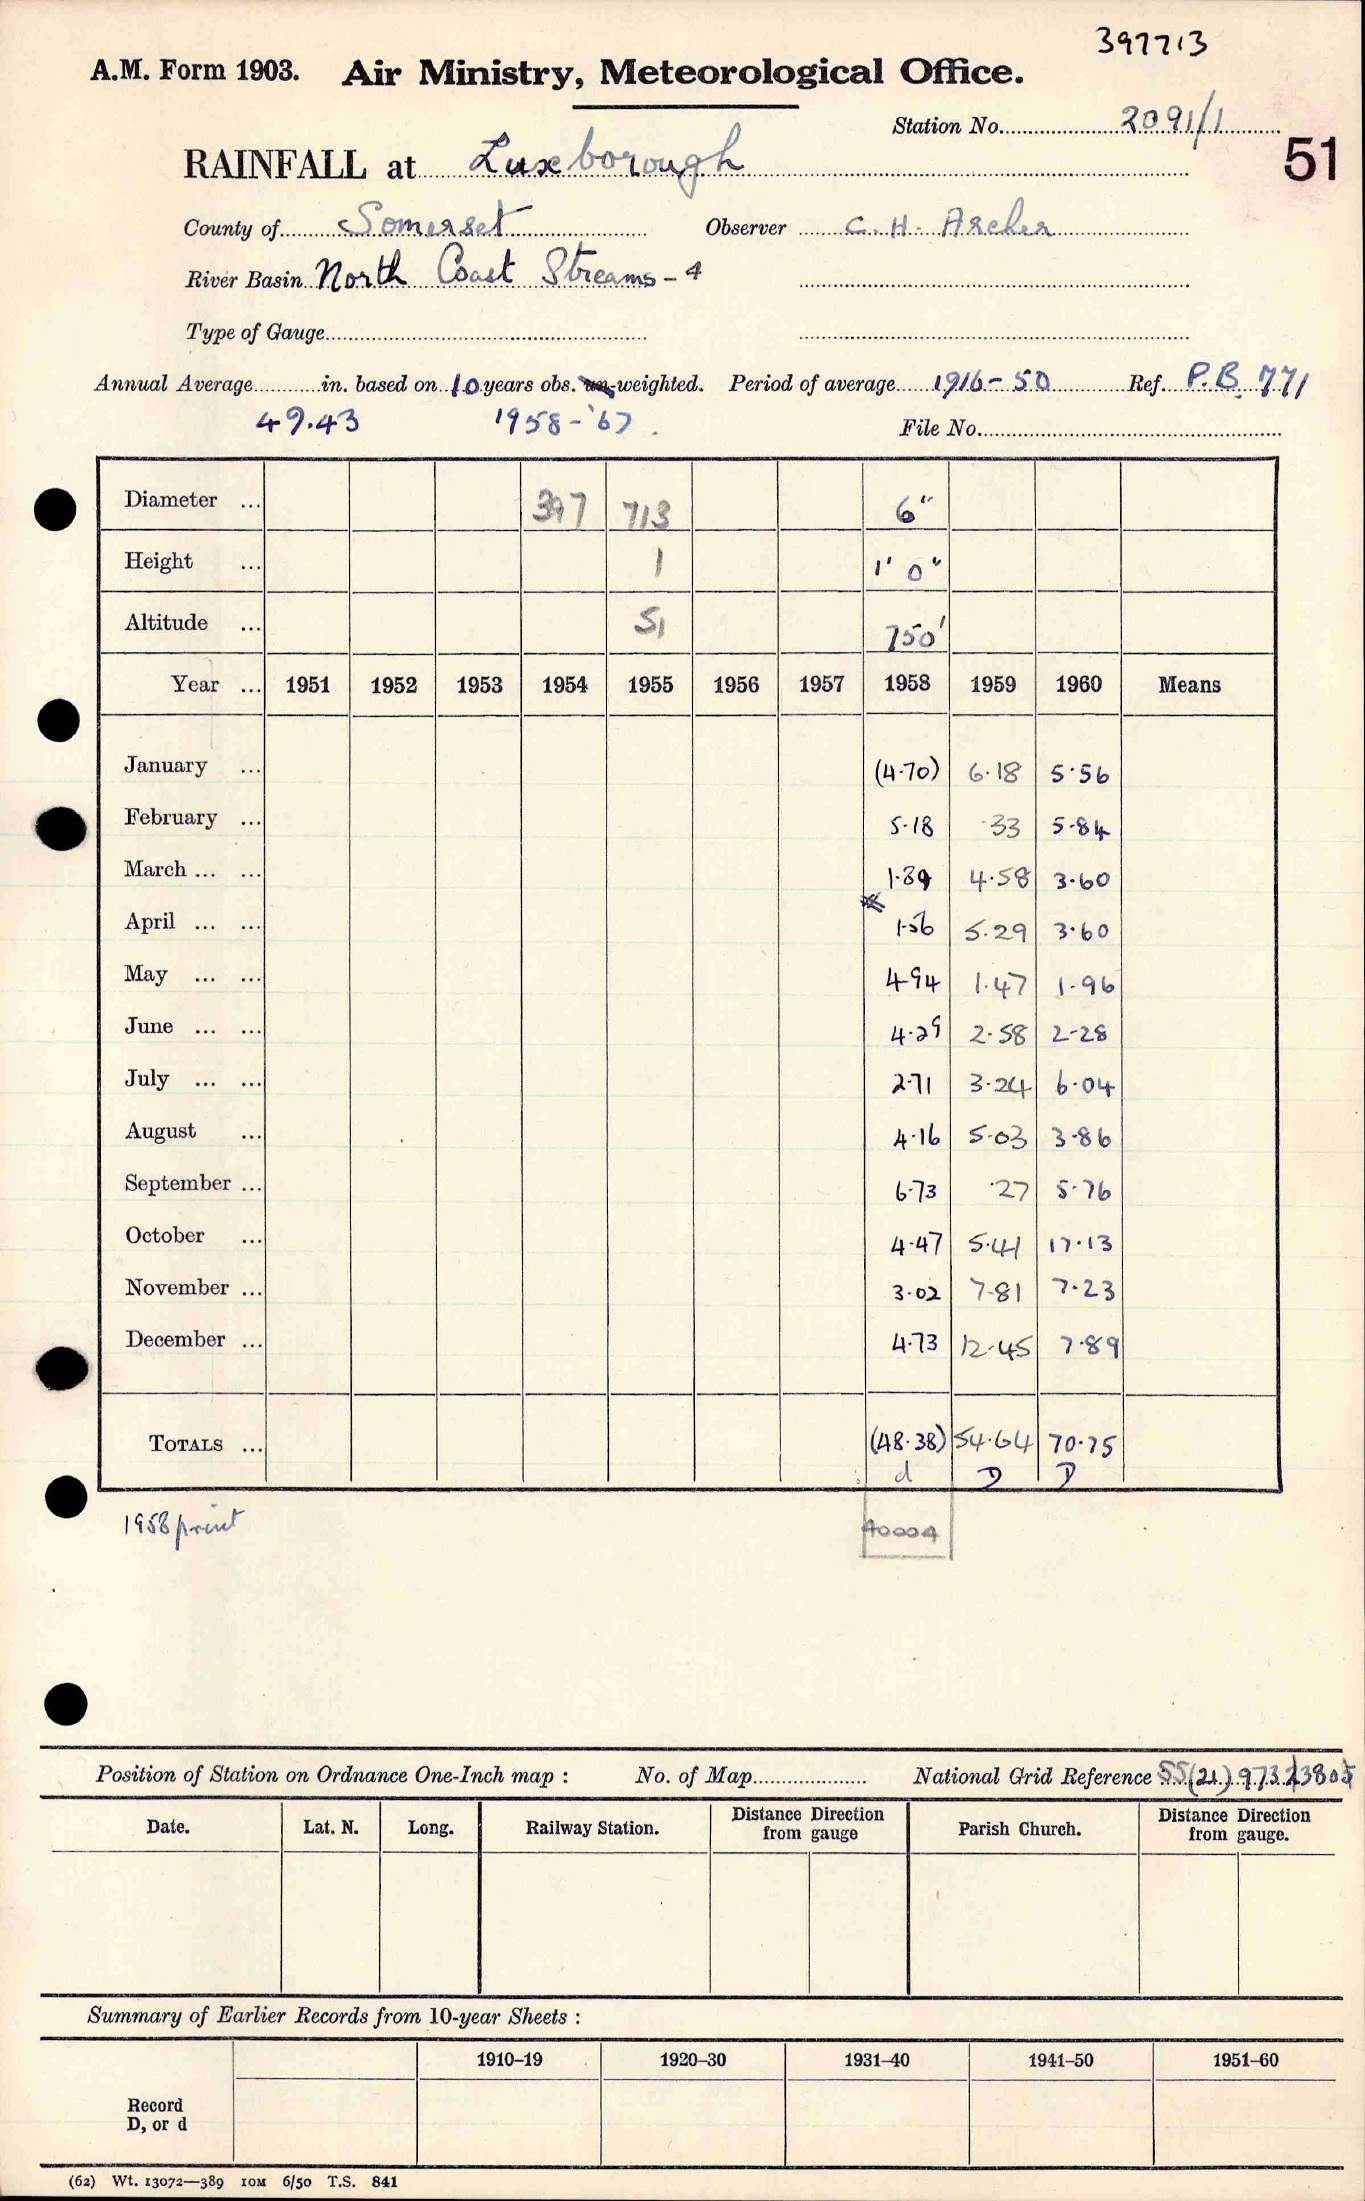 397713
A.M. Form 1903. Air Ministry, Meteorological Office.
Station No. 2091/1
51
RAINFALL at Luxborough
County of Somerset Observer C. H. Archer
River Basin North Coast Streams - 4
Type of Gauge
Annual Average in. based on 10 years obs. un-weighted. Period of average 1916-50 Ref. P.B. 771
49.43 1958-'67. File No.
Diameter ... 397 713 6"
Height ... 1 1' 0"
Altitude ... 51 750'
Year ... 1951 1952 1953 1954 1955 1956 1957 1958 1959 1960 Means
January ... (4.70) 6.18 5.56
February ... 5.18 .33 5.84
March ... ... 1.89 4.58 3.60
April ... ... 1.56 5.29 3.60
May ... ... 4.94 1.47 1.96
June ... ... 4.29 2.58 2.28
July ... ... 2.71 3.24 6.04
August ... 4.16 5.03 3.86
September ... 6.73 .27 5.76
October ... 4.47 5.41 17.13
November ... 3.02 7.81 7.23
December ... 4.73 12.45 7.89
TOTALS ... (48.38) 54.64 70.75
d D D
1958 print 40004
Position of Station on Ordnance One-Inch map : No. of Map National Grid Reference SS (21) 973
Date. Lat. N. Long. Railway Station. Distance Direction from gauge Parish Church. Distance Direction from gauge.
Summary of Earlier Records from 10-year Sheets :
1910–19 1920–30 1931–40 1941–50 1951–60
Record
D, or d
(62) Wt. 13072—389 10M 6/50 T.S. 841